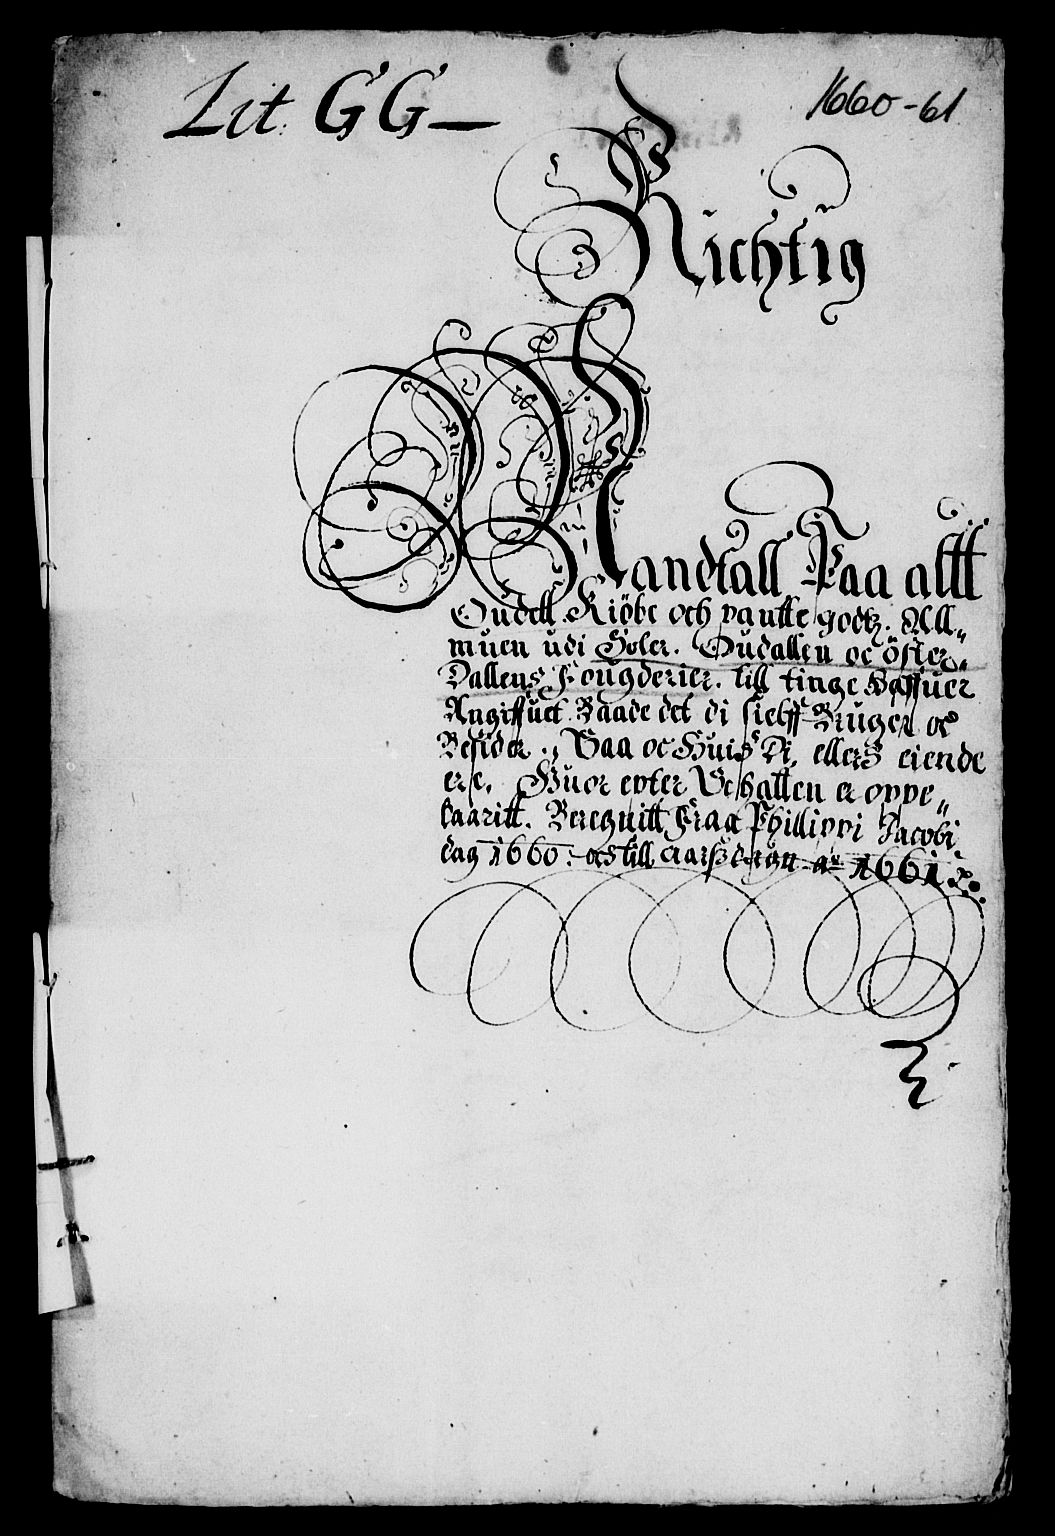 Lit: GG—
1660-61
Richtig
Mandtall Paa altt
Oudell. Kiöbe och pantte godtz. All„
muen udi Soler. Oudallen oc öster„
Dallens Fougderier. till tinge haffuer
Angiffuet. Baade det di sielff Bruger oc
Besider., Saa oc Huis Di, ellers eiende
ere. Huor epter Schatten er oppe„
baaritt. Beregnitt Fraa Phillippi Jacobi
dag 1660. och till aarsdagen Ao 1661